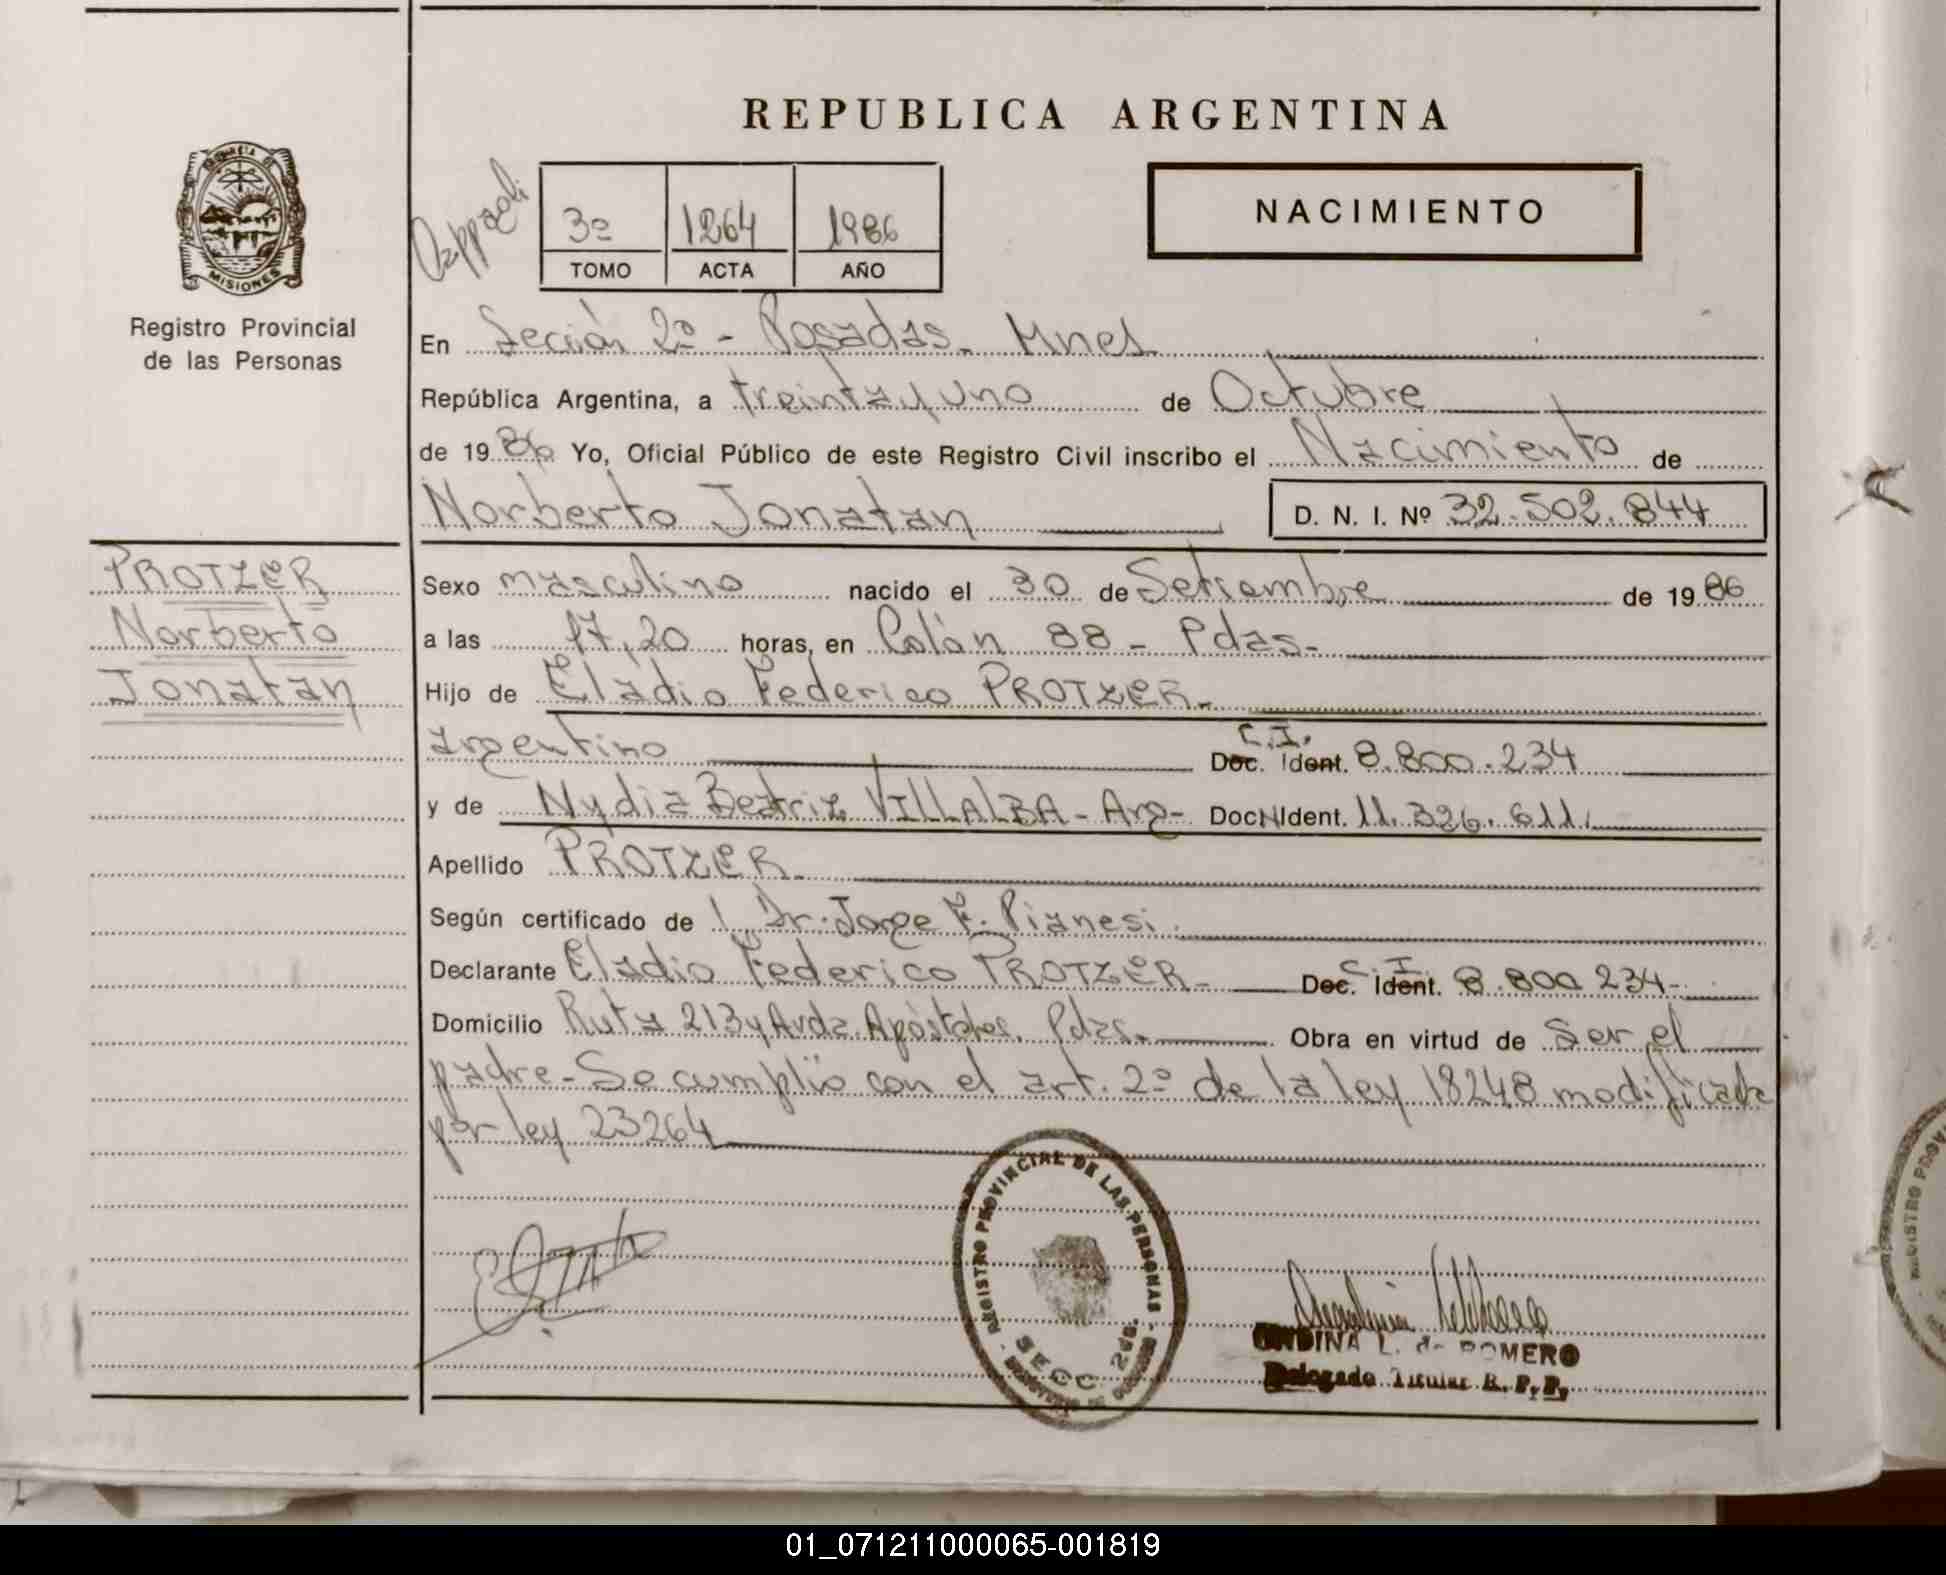 REPUBLICA ARGENTINA
PROVINCIA DE
MISIONES
Registro Provincial
de las Personas
3º 1264 1986
TOMO ACTA AÑO
NACIMIENTO
En Sección 2ª - Posadas. Mnes
República Argentina, a treinta y uno de Octubre
de 1986 Yo, Oficial Público de este Registro Civil inscribo el Nacimiento de
Norberto Jonatan D. N. I. Nº 32.502.844
PROTZER
Norberto
Jonatan
Sexo masculino nacido el 30 de Setiembre de 1986
a las 17,20 horas, en Colón 88 - Pdas.
Hijo de Eladio Federico PROTZER.
argentino C.I. Doc. Ident. 8.800.234
y de Nydia Beatriz VILLALBA - Arg- DocNIdent. 11.326.611.
Apellido PROTZER.
Según certificado de Dr. Jorge F. Pianesi.
Declarante Eladio Federico PROTZER - C.I. Doc. Ident. 8.800 234-
Domicilio Ruta 213 y Avda. Apóstoles. Pdas. Obra en virtud de Ser el
padre - Se cumplió con el art. 2º de la ley 18248 modificada
por ley 23264
REGISTRO PROVINCIAL DE LAS PERSONAS
SECC 2da.
L. de ROMERO
Delegado Titular R. P. P.
01_071211000065-001819